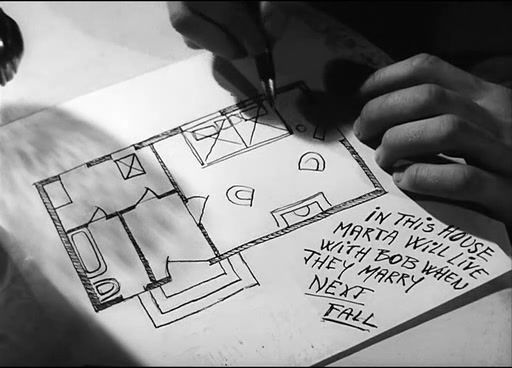 IN THiS HOUSE
MARTA WiLL LiVE
WITH BOB WHEN
THEY MARRY
NEXT
FALL